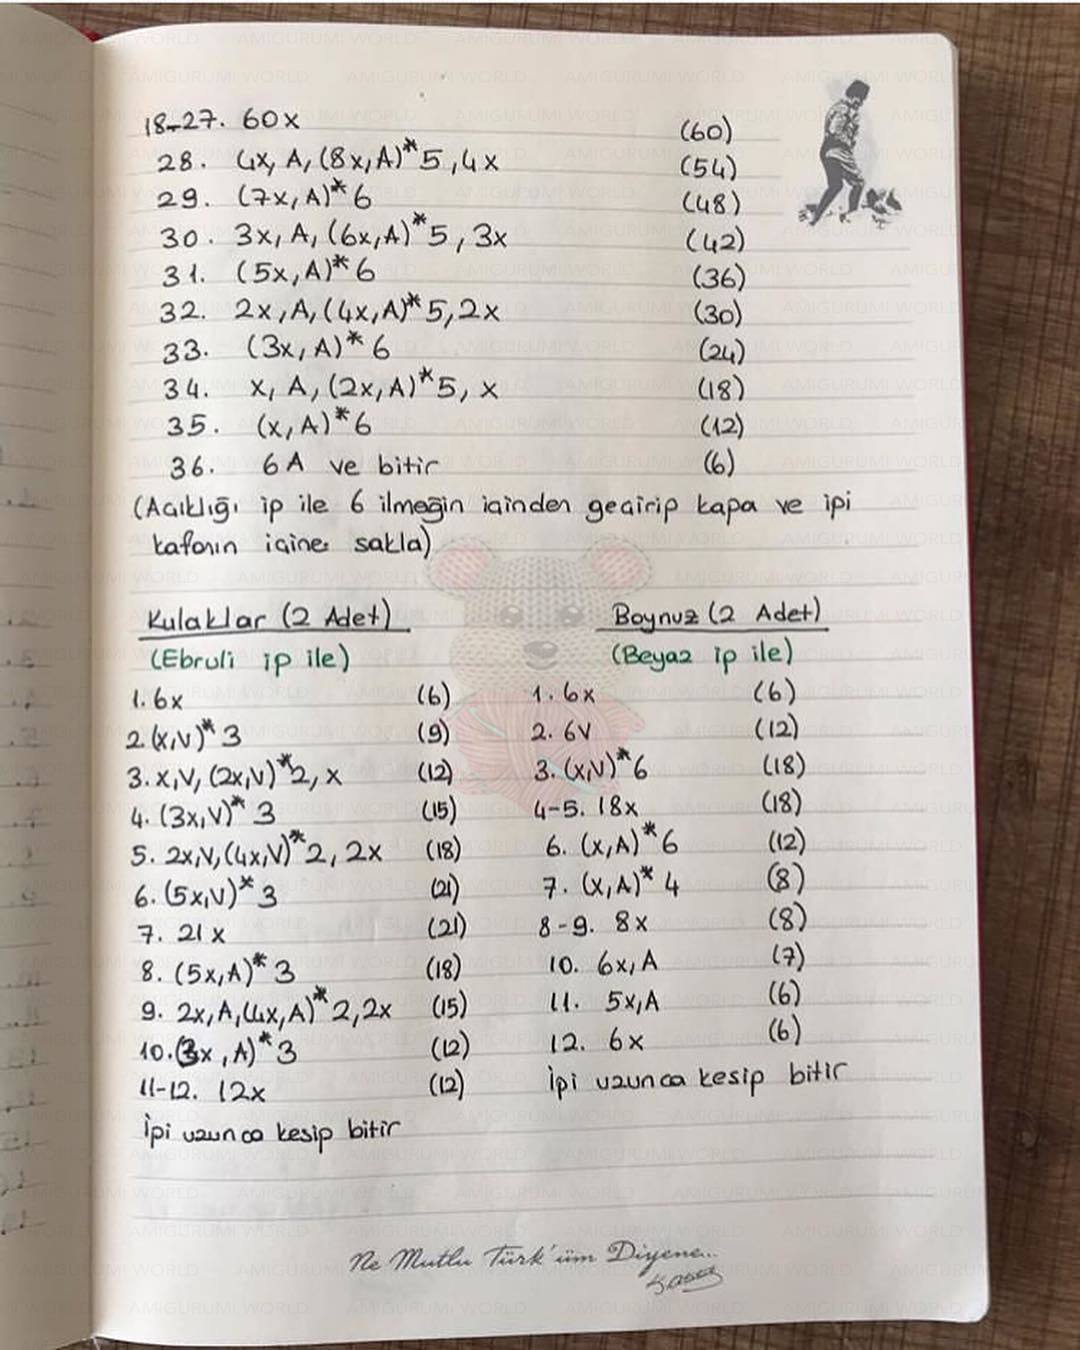 18-27. 60x (60)
28. 4x, A, (8x, A)*5, 4x (54)
29. (7x, A)*6 (48)
30. 3x, A, (6x, A)*5, 3x (42)
31. (5x, A)*6 (36)
32. 2x, A, (4x, A)*5, 2x (30)
33. (3x, A)*6 (24)
34. x, A, (2x, A)*5, x (18)
35. (x, A)*6 (12)
36. 6A ve bitir (6)
(Açıklığı ip ile 6 ilmeğin içinden geçirip kapa ve ipi
kafanın içine sakla)
Kulaklar (2 Adet)
(Ebruli ip ile)
1. 6x (6)
2. (x,V)*3 (9)
3. x,V, (2x,V)*2, x (12)
4. (3x,V)*3 (15)
5. 2x,V,(4x,V)*2, 2x (18)
6. (5x,V)*3 (21)
7. 21x (21)
8. (5x,A)*3 (18)
9. 2x,A,(4x,A)*2,2x (15)
10. (3x, A)*3 (12)
11-12. 12x (12)
İpi uzunca kesip bitir
Boynuz (2 Adet)
(Beyaz ip ile)
1. 6x (6)
2. 6V (12)
3. (x,V)*6 (18)
4-5. 18x (18)
6. (x,A)*6 (12)
7. (x,A)*4 (8)
8-9. 8x (8)
10. 6x, A (7)
11. 5x,A (6)
12. 6x (6)
İpi uzunca kesip bitir
Ne Mutlu Türk'üm Diyene...
AMIGURUMI WORLD